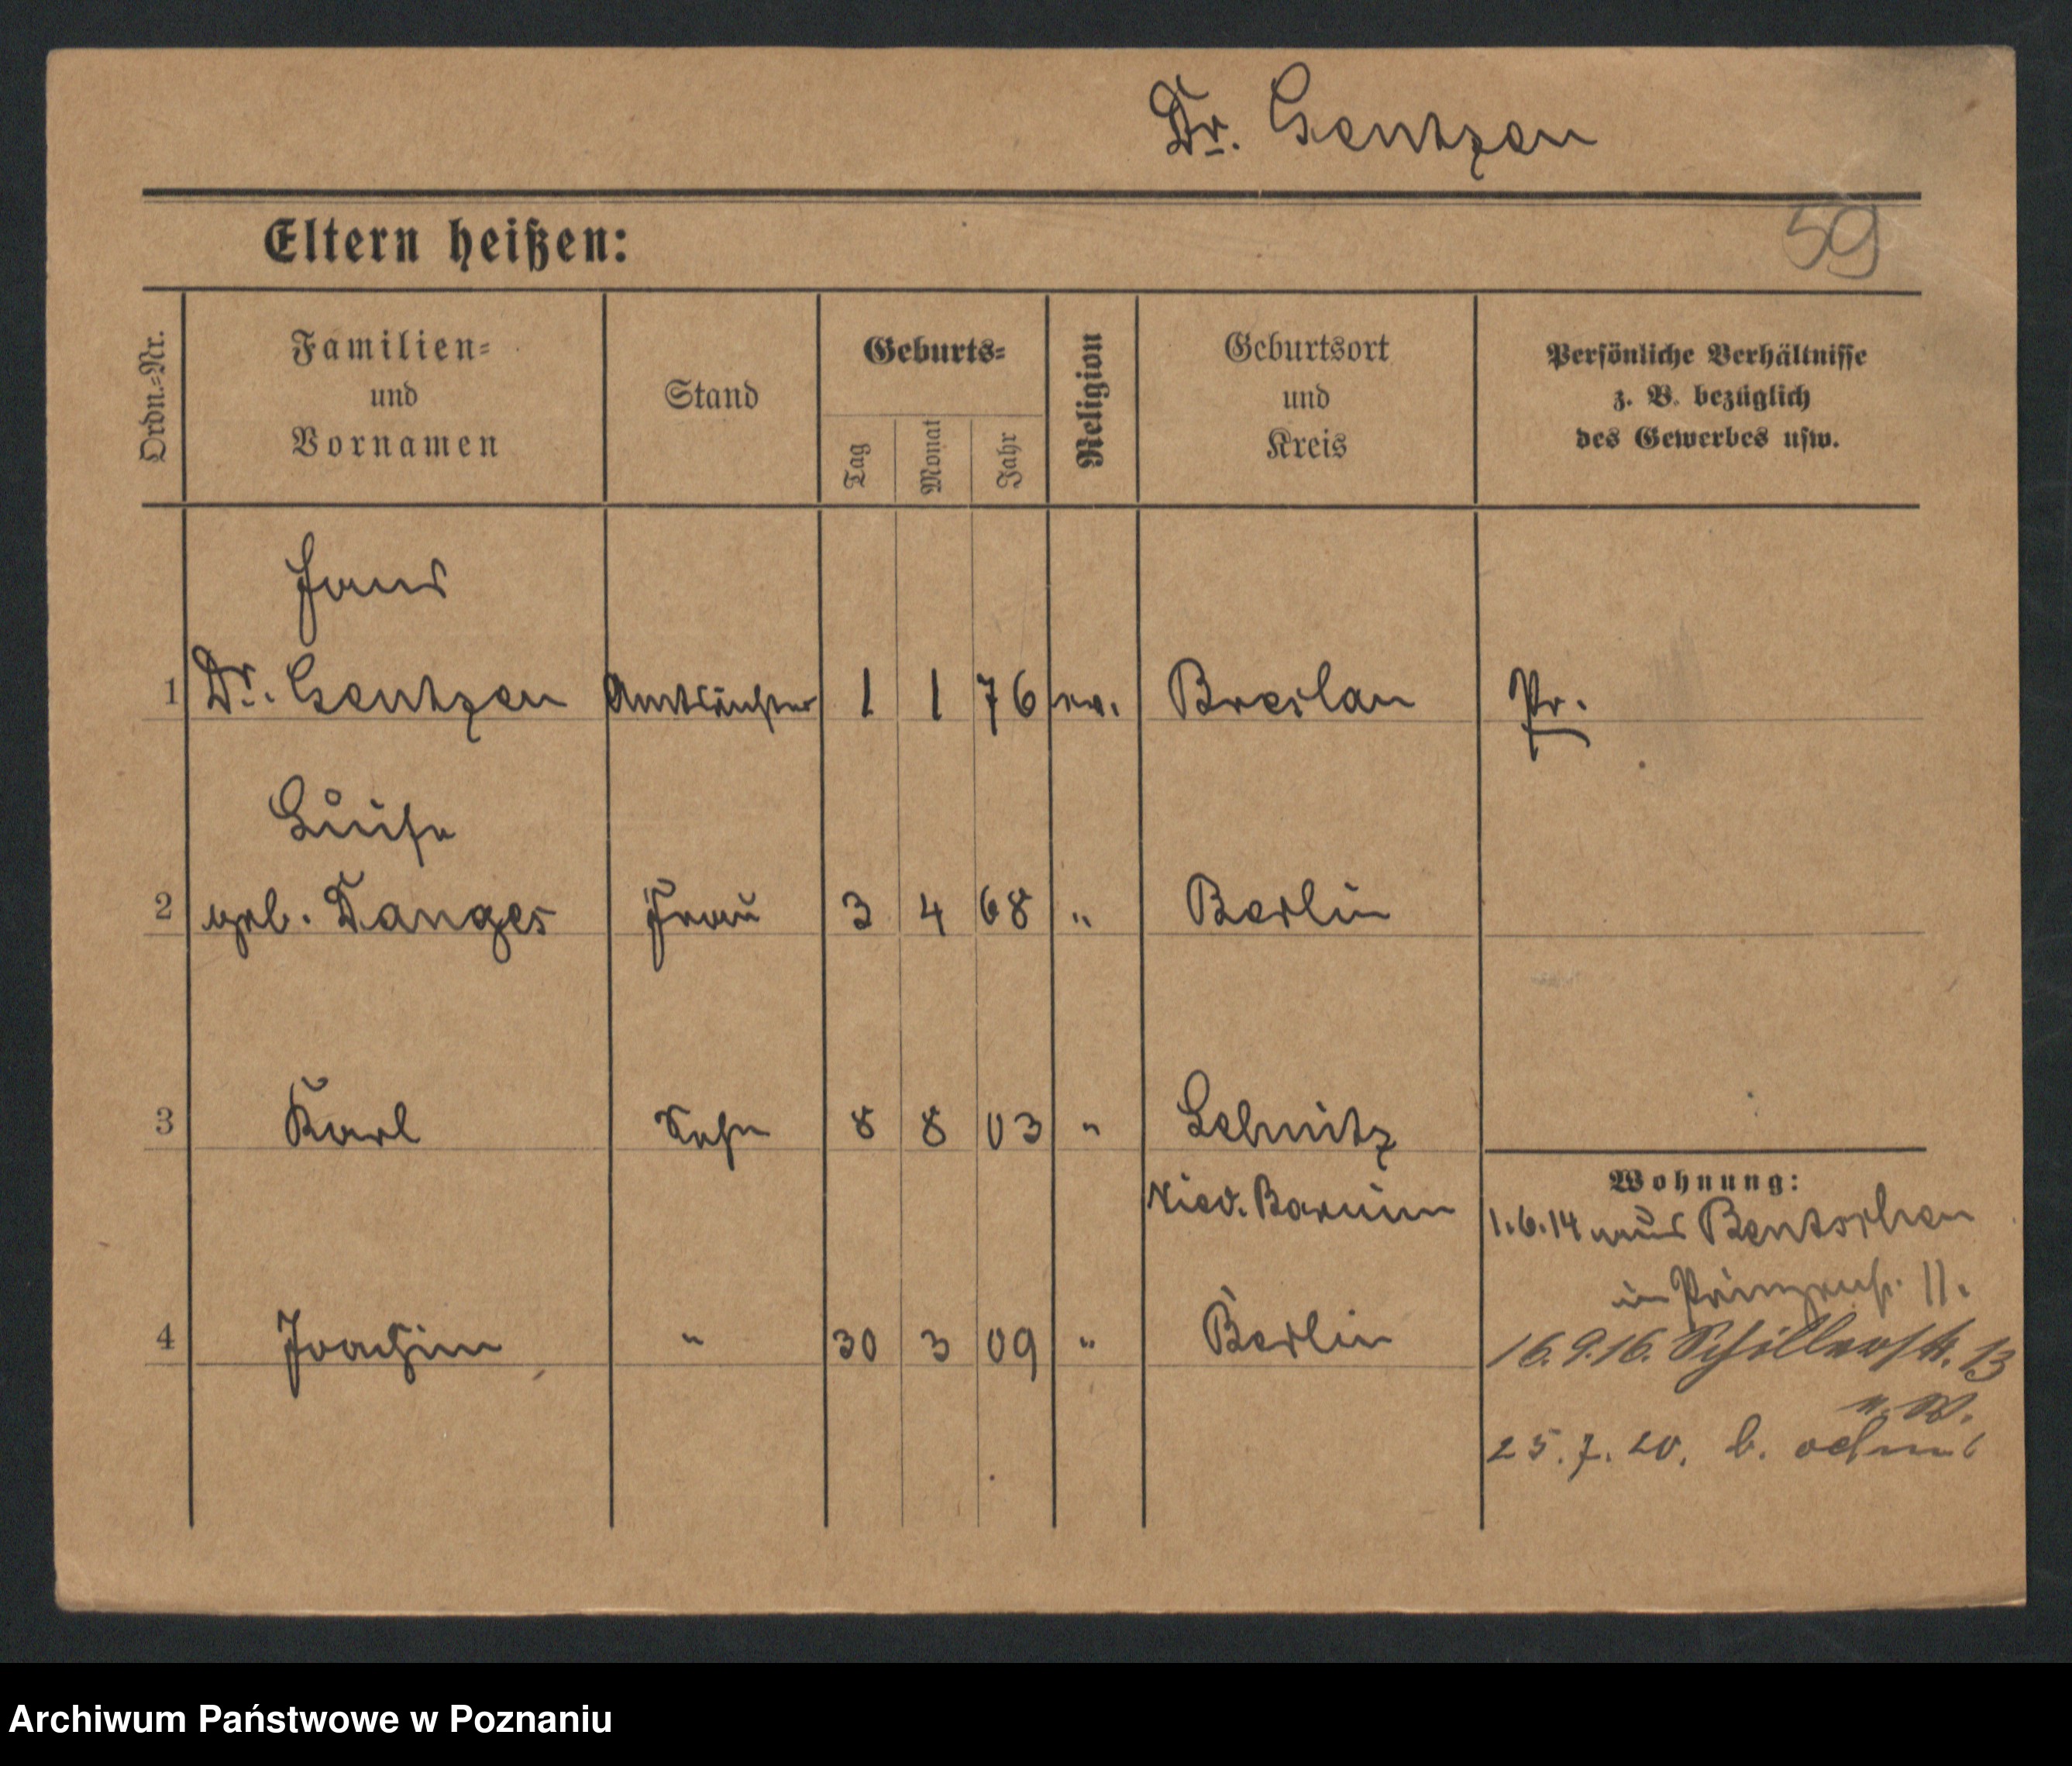 Dr. Gentzen
Eltern heißen:
59
Ordn.-Nr.
Familien- und Vornamen
Stand
Geburts-
Tag
Monat
Jahr
Religion
Geburtsort und Kreis
Persönliche Verhältnisse
z. B. bezüglich
des Gewerbes usw.
Hans
1 Dr. Gentzen Amtsrichter 1 1 76 ev. Breslau Pr.
Luise
2 geb. Danges Frau 3 4 68 " Berlin
3 Karl Sohn 8 8 03 " Lehnitz
Wohnung:
Nied. Barnim
1.6.14 aus Bentschen
in Prinzenstr. 11.
4 Joachim " 30 3 09 " Berlin
16.9.16. Schillerstr. 13
25.7.20. b.